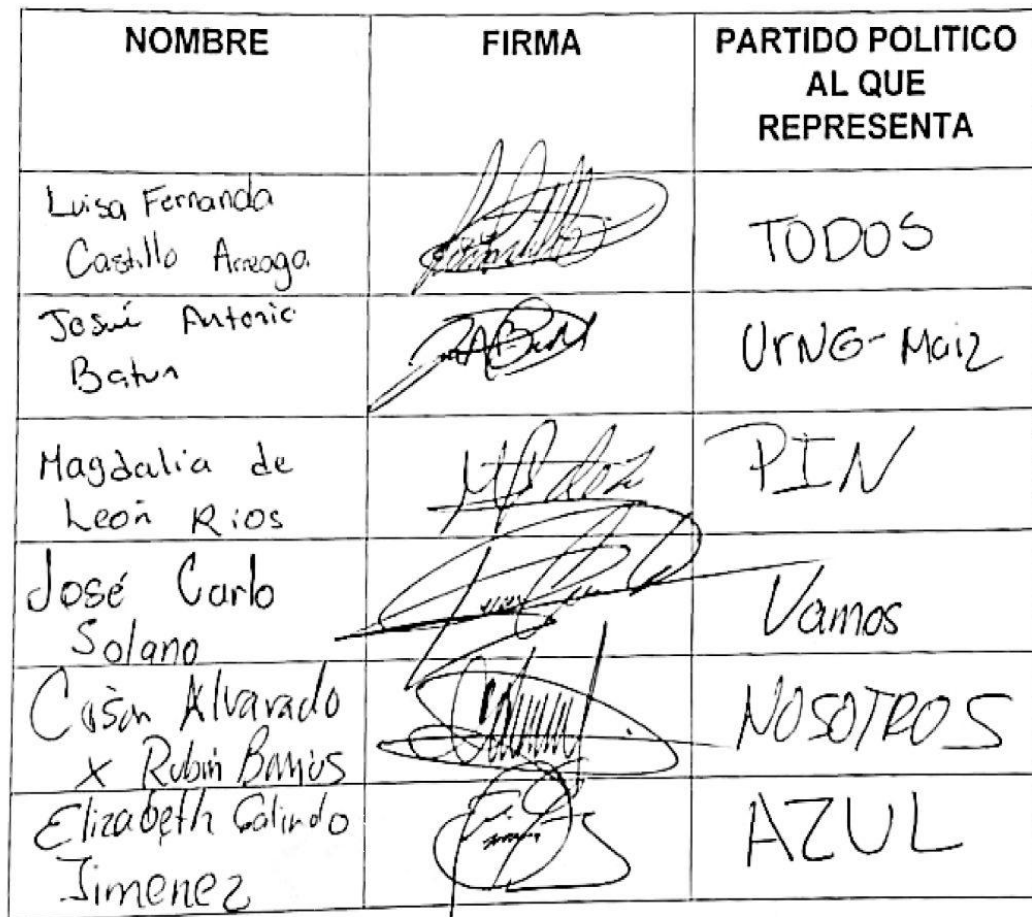 NOMBRE
FIRMA
PARTIDO POLITICO
AL QUE
REPRESENTA
Luisa Fernanda
Castillo Arreaga
TODOS
Josué Antonio
Batun
UrNG-Maiz
Magdalia de
León Rios
PIN
José Carlo
Solano
Vamos
Alvarado
x Rubin Barrios
NOSOTROS
Elizabeth Galindo
Jimenez
AZUL